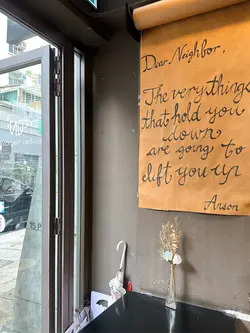 Dear Neighbor,
The very things
that hold you
down
are going to
lift you up
Anson